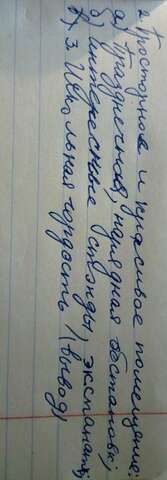 2. Просторное и красивое помещение:
а) праздничная, нарядная обстановка,
б) интересные стенды, экспонаты;
в)
3. Школьная гордость (вывод)